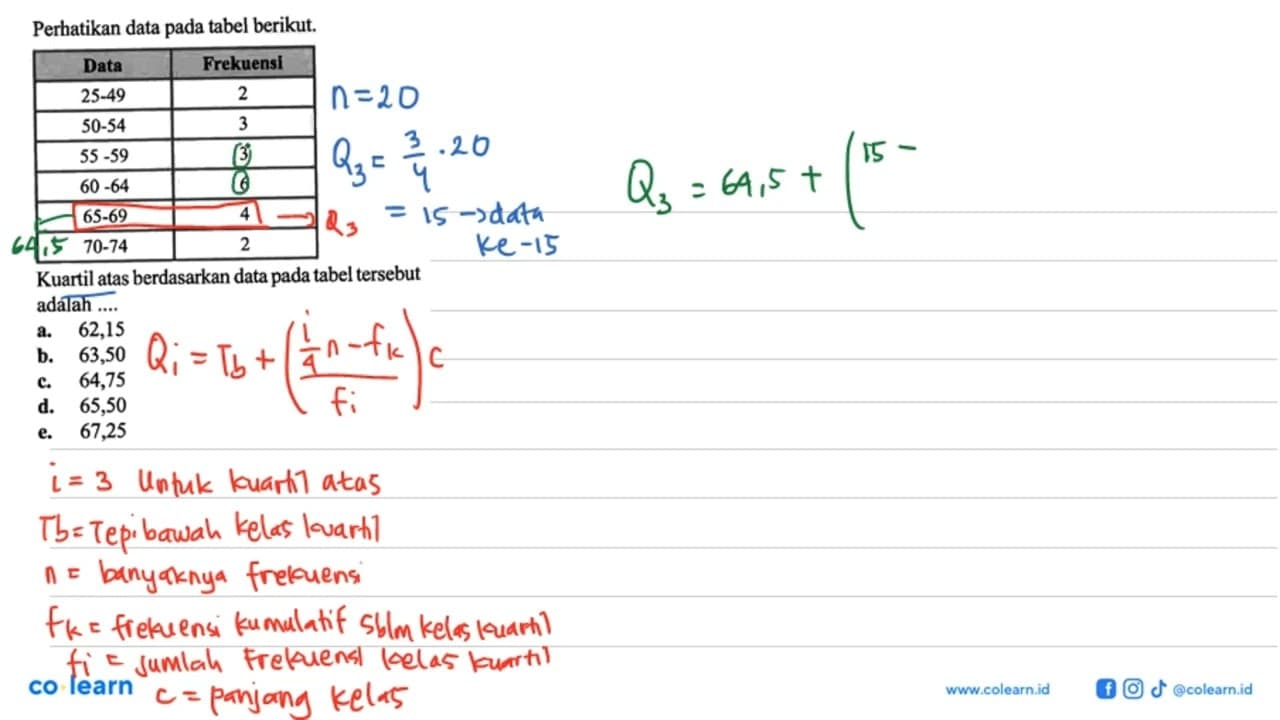 Perhatikan data pada tabel berikut.
Data Frekuensi
25-49 2
50-54 3
55 -59 3
60 -64 6
65-69 4 → Q₃
64,5 70-74 2
n = 20
Q₃ = 3/4 . 20
= 15 → data
ke-15
Q₃ = 64,5 + (15 -
Kuartil atas berdasarkan data pada tabel tersebut
adalah ....
a. 62,15
b. 63,50
c. 64,75
d. 65,50
e. 67,25
Qi = Tb + ((i/4 n - fk)/fi) c
i = 3 Untuk kuartil atas
Tb = Tepi bawah kelas kuartil
n = banyaknya frekuensi
fk = frekuensi kumulatif sblm kelas kuartil
fi = jumlah frekuensi kelas kuartil
c = panjang kelas
co learn
www.colearn.id
@colearn.id